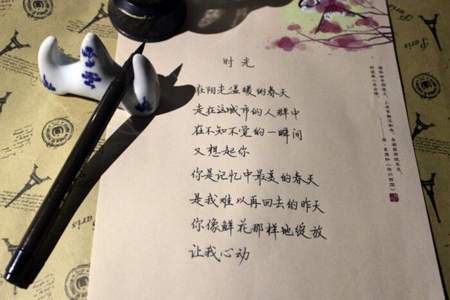 时光
在阳光温暖的春天
走在这城市的人群中
在不知不觉的一瞬间
又想起你
你是记忆中最美的春天
是我难以再回去的昨天
你像鲜花那样地绽放
让我心动
Paris
Paris